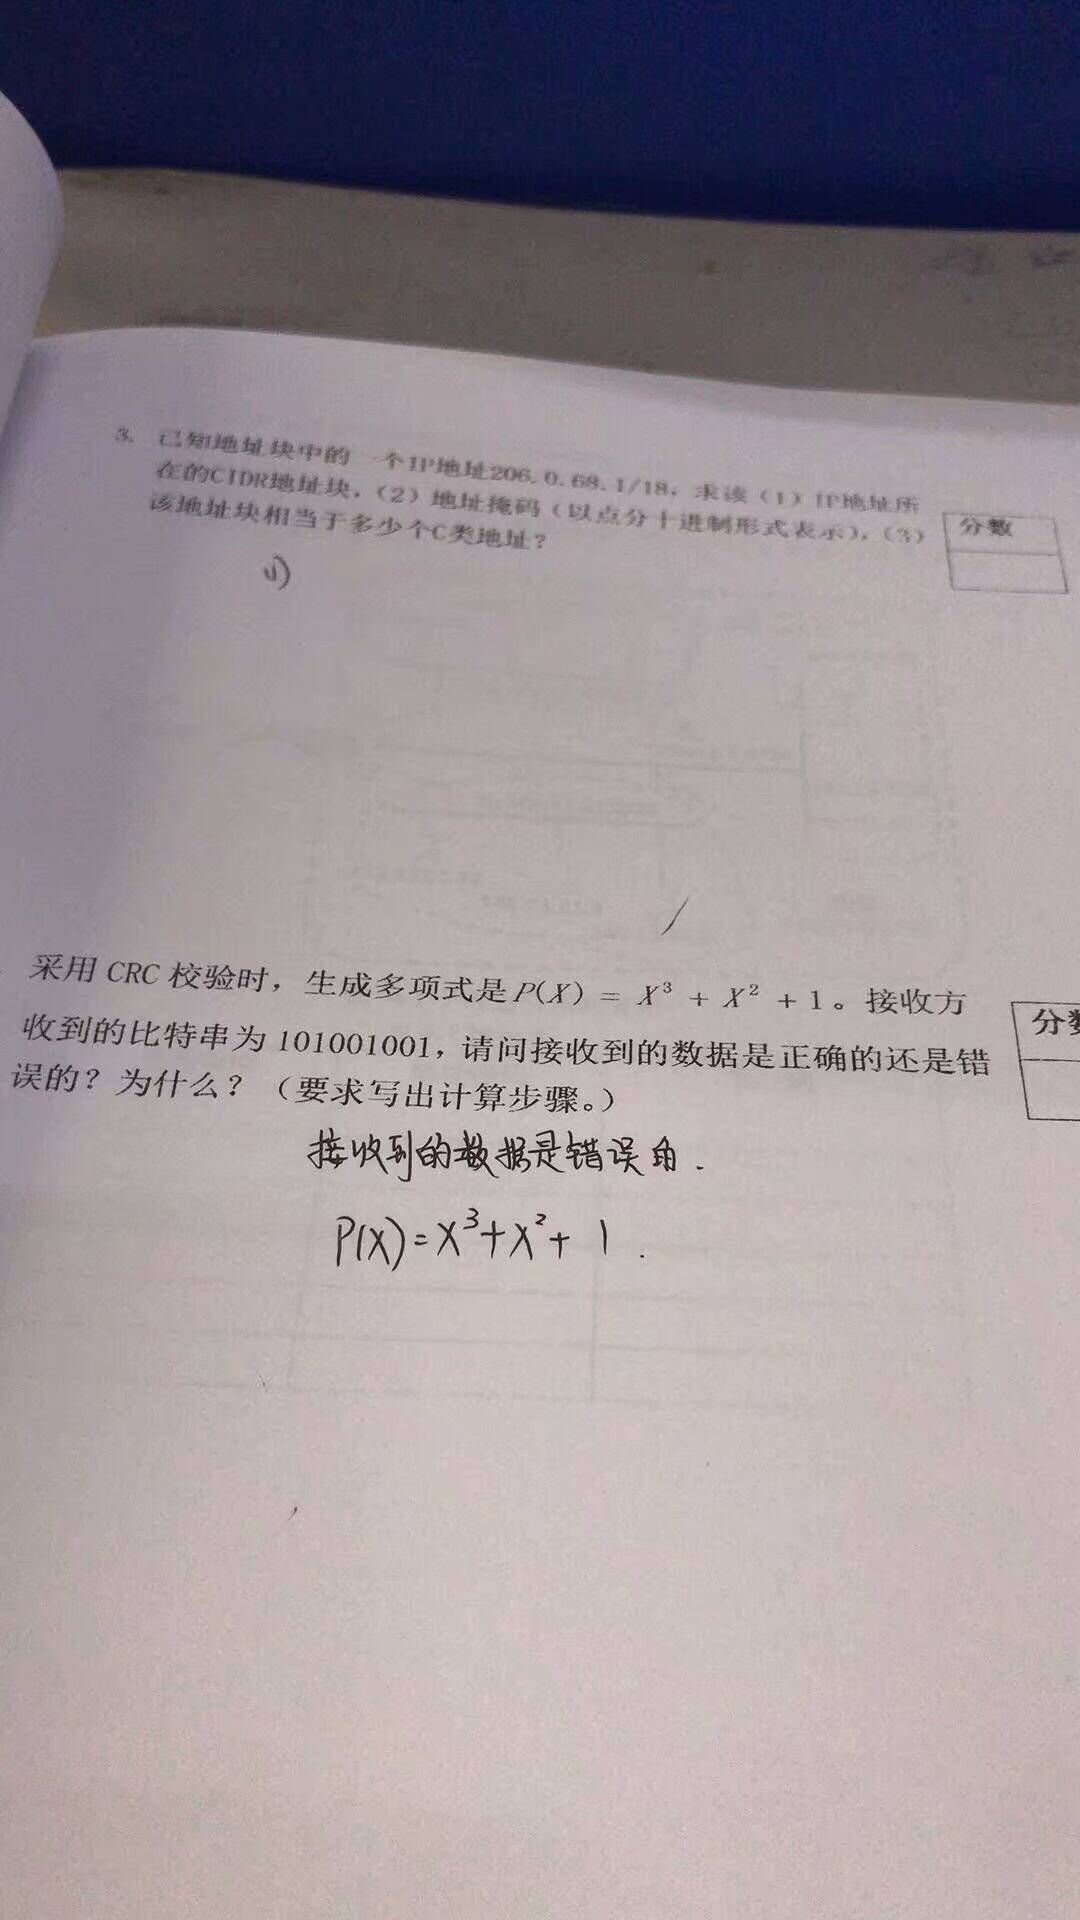 3. 已知地址块中的一个IP地址206.0.68.1/18,求该(1)IP地址所
在的CIDR地址块,(2)地址掩码(以点分十进制形式表示),(3)
该地址块相当于多少个C类地址?
分数
(1)
采用 CRC 校验时，生成多项式是 P(X) = X³ + X² + 1。接收方
收到的比特串为 101001001，请问接收到的数据是正确的还是错
误的？为什么？（要求写出计算步骤。）
分数
接收到的数据是错误的.
P(X)=X³+X²+1.